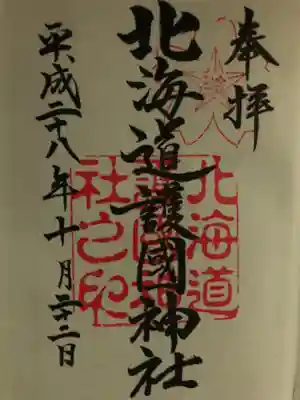 奉拝
北海道護國神社
北海道
護國神
社之印
平成二十八年十月二十二日